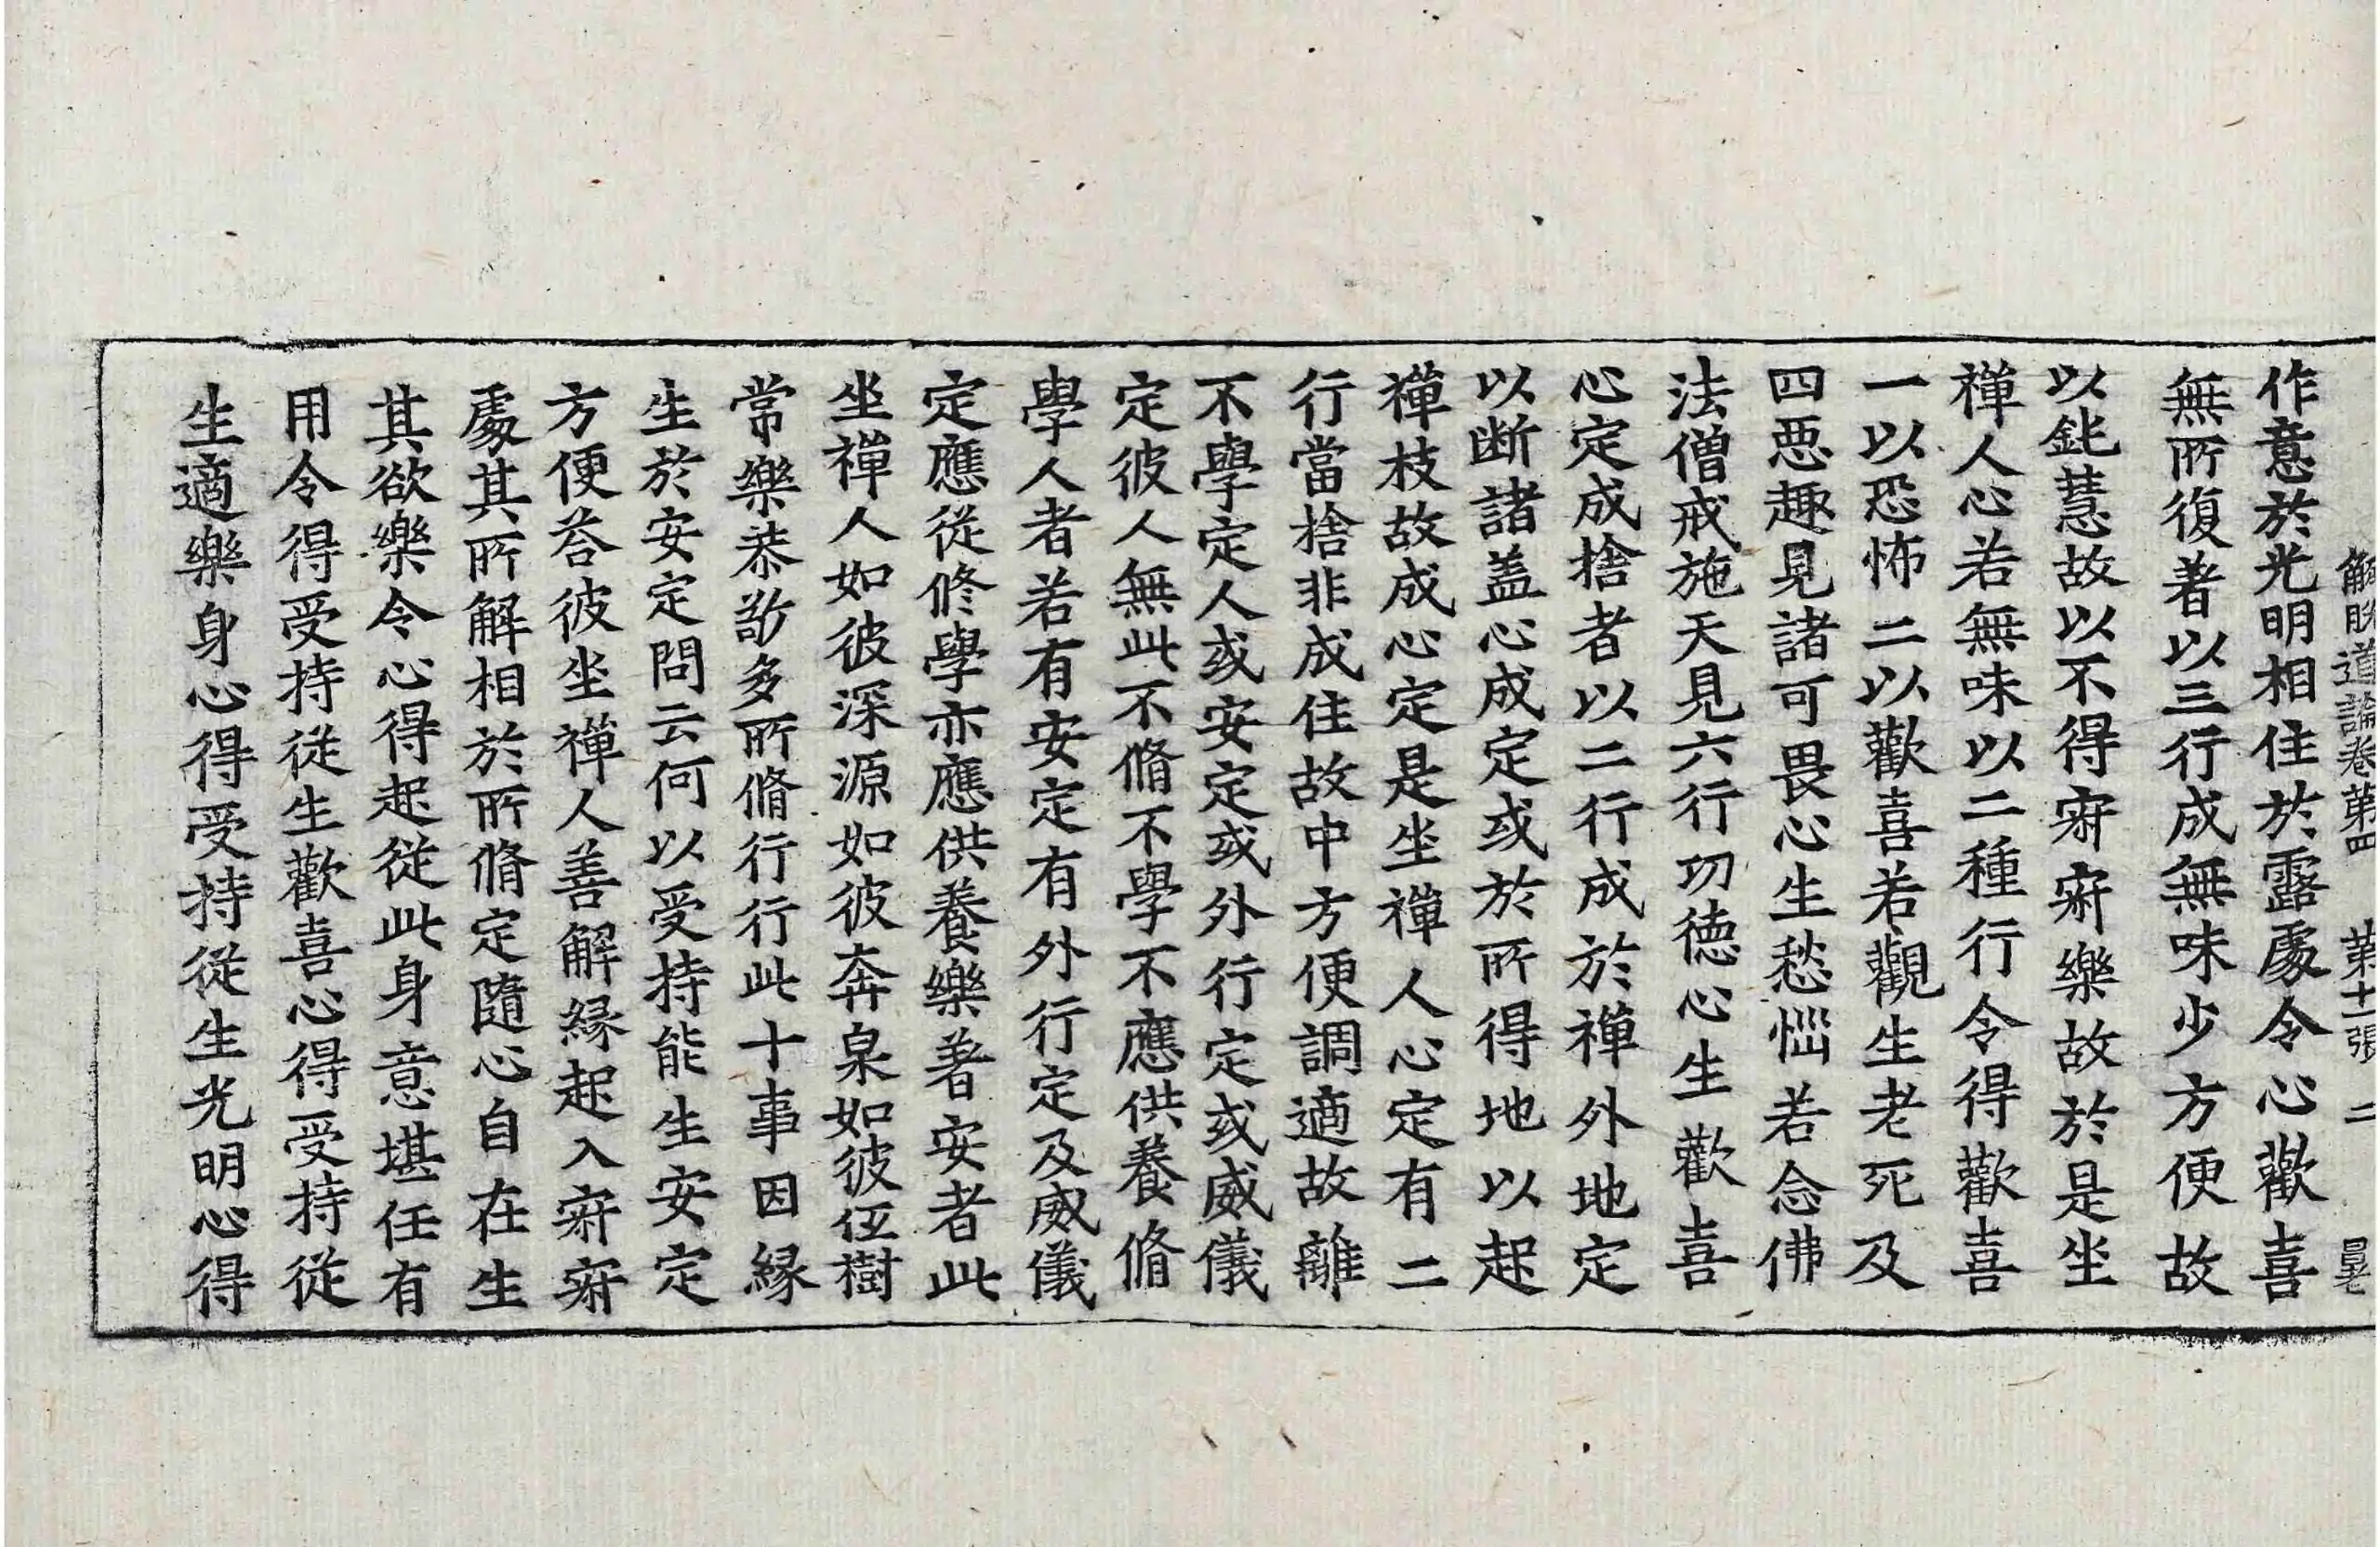 解脫道論卷第四 第十一張 二
作意於光明相住於露處令心歡喜
無所復著以三行成無味少方便故
以鈍慧故以不得寂寂樂故於是坐
禪人心若無味以二種行令得歡喜
一以恐怖二以歡喜若觀生老死及
四惡趣見諸可畏心生愁惱若念佛
法僧戒施天見六行功德心生歡喜
心定成捨者以二行成於禪外地定
以断諸盖心成定或於所得地以起
禪枝故成心定是坐禪人心定有二
行當捨非成住故中方便調適故離
不學定人或安定或外行定或威儀
定彼人無此不脩不學不應供養脩
學人者若有安定有外行定及威儀
定應從修學亦應供養樂著安者此
坐禪人如彼深源如彼奔泉如彼低樹
常樂恭敬多所脩行行此十事因緣
生於安定問云何以受持能生安定
方便荅彼坐禪人善解緣起入寂寂
處其所解相於所脩定隨心自在生
其欲樂令心得起從此身意堪任有
用令得受持從生歡喜心得受持從
生適樂身心得受持從生光明心得